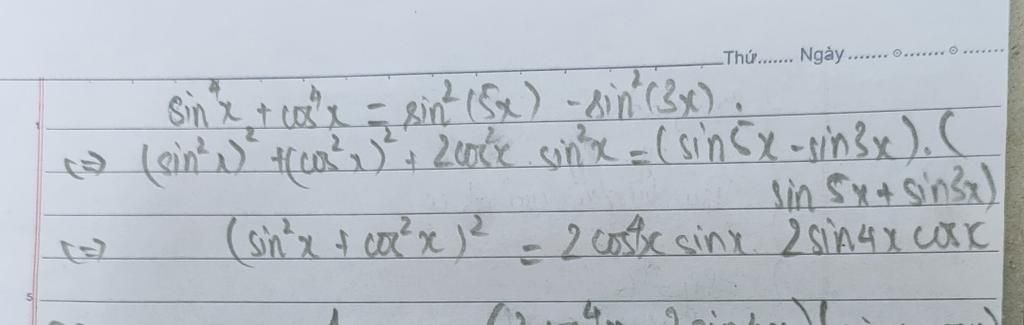 Thứ....... Ngày ....... o ....... o .......
sin⁴x + cos⁴x = sin²(5x) - sin²(3x).
<=> (sin²x)² + (cos²x)² + 2cos²x sin²x = (sin5x - sin3x).(
sin 5x + sin3x)
<=> (sin²x + cos²x)² = 2cos4x sinx 2sin4x cosx
5